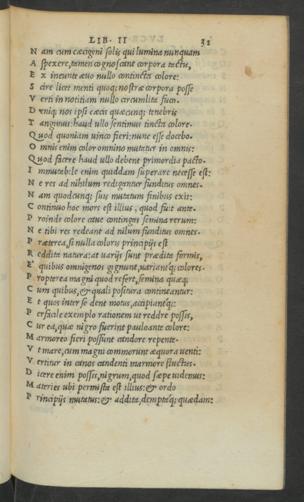 LIB. II 32
N am cum cæcigeni solis qui lumina nunquam
A spexere, tamen cognoscant corpora tactu,
E x ineunte æuo nullo contincta colore:
S cire licet menti quoq; nostræ corpora posse
V erti in notitiam nullo circumlita fuco.
D eniq; nos ipsi cæcis quæcunq; tenebris
T angimus: haud ullo sentimus tincta colore.
Q uod quoniam uinco fieri: nunc esse docebo.
O mnis enim color omnino mutatur in omnis:
Q uod facere haud ullo debent primordia pacto.
I mmutabile enim quiddam superare necesse est:
N e res ad nihilum redigantur funditus omnes.
N am quodcunq; suis mutatum finibus exit:
C ontinuo hoc mors est illius, quod fuit ante.
P roinde colore caue contingas semina rerum:
N e tibi res redeant ad nilum funditus omnes.
P ræterea, si nulla coloris principijs est
R eddita natura: at uarijs sunt prædita formis,
E quibus omnigenos gignunt, uariantq; colores.
P ropterea magni quod refert, semina quæq;
C um quibus, & quali positura contineantur:
E t quos inter se dent motus, accipiantq;:
P erfacile exemplo rationem ut reddre possis,
C ur ea, quæ nigro fuerint pauloante colore:
M armoreo fieri possunt candore repente.
V t mare, cum magni commorunt æquora uenti:
V ertitur in canos candenti marmore fluctus.
D icere enim possis, nigrum, quod sæpe uidemus:
M ateries ubi permista est illius: & ordo
P rincipijs mutatus: & addita, demptaq; quædam: